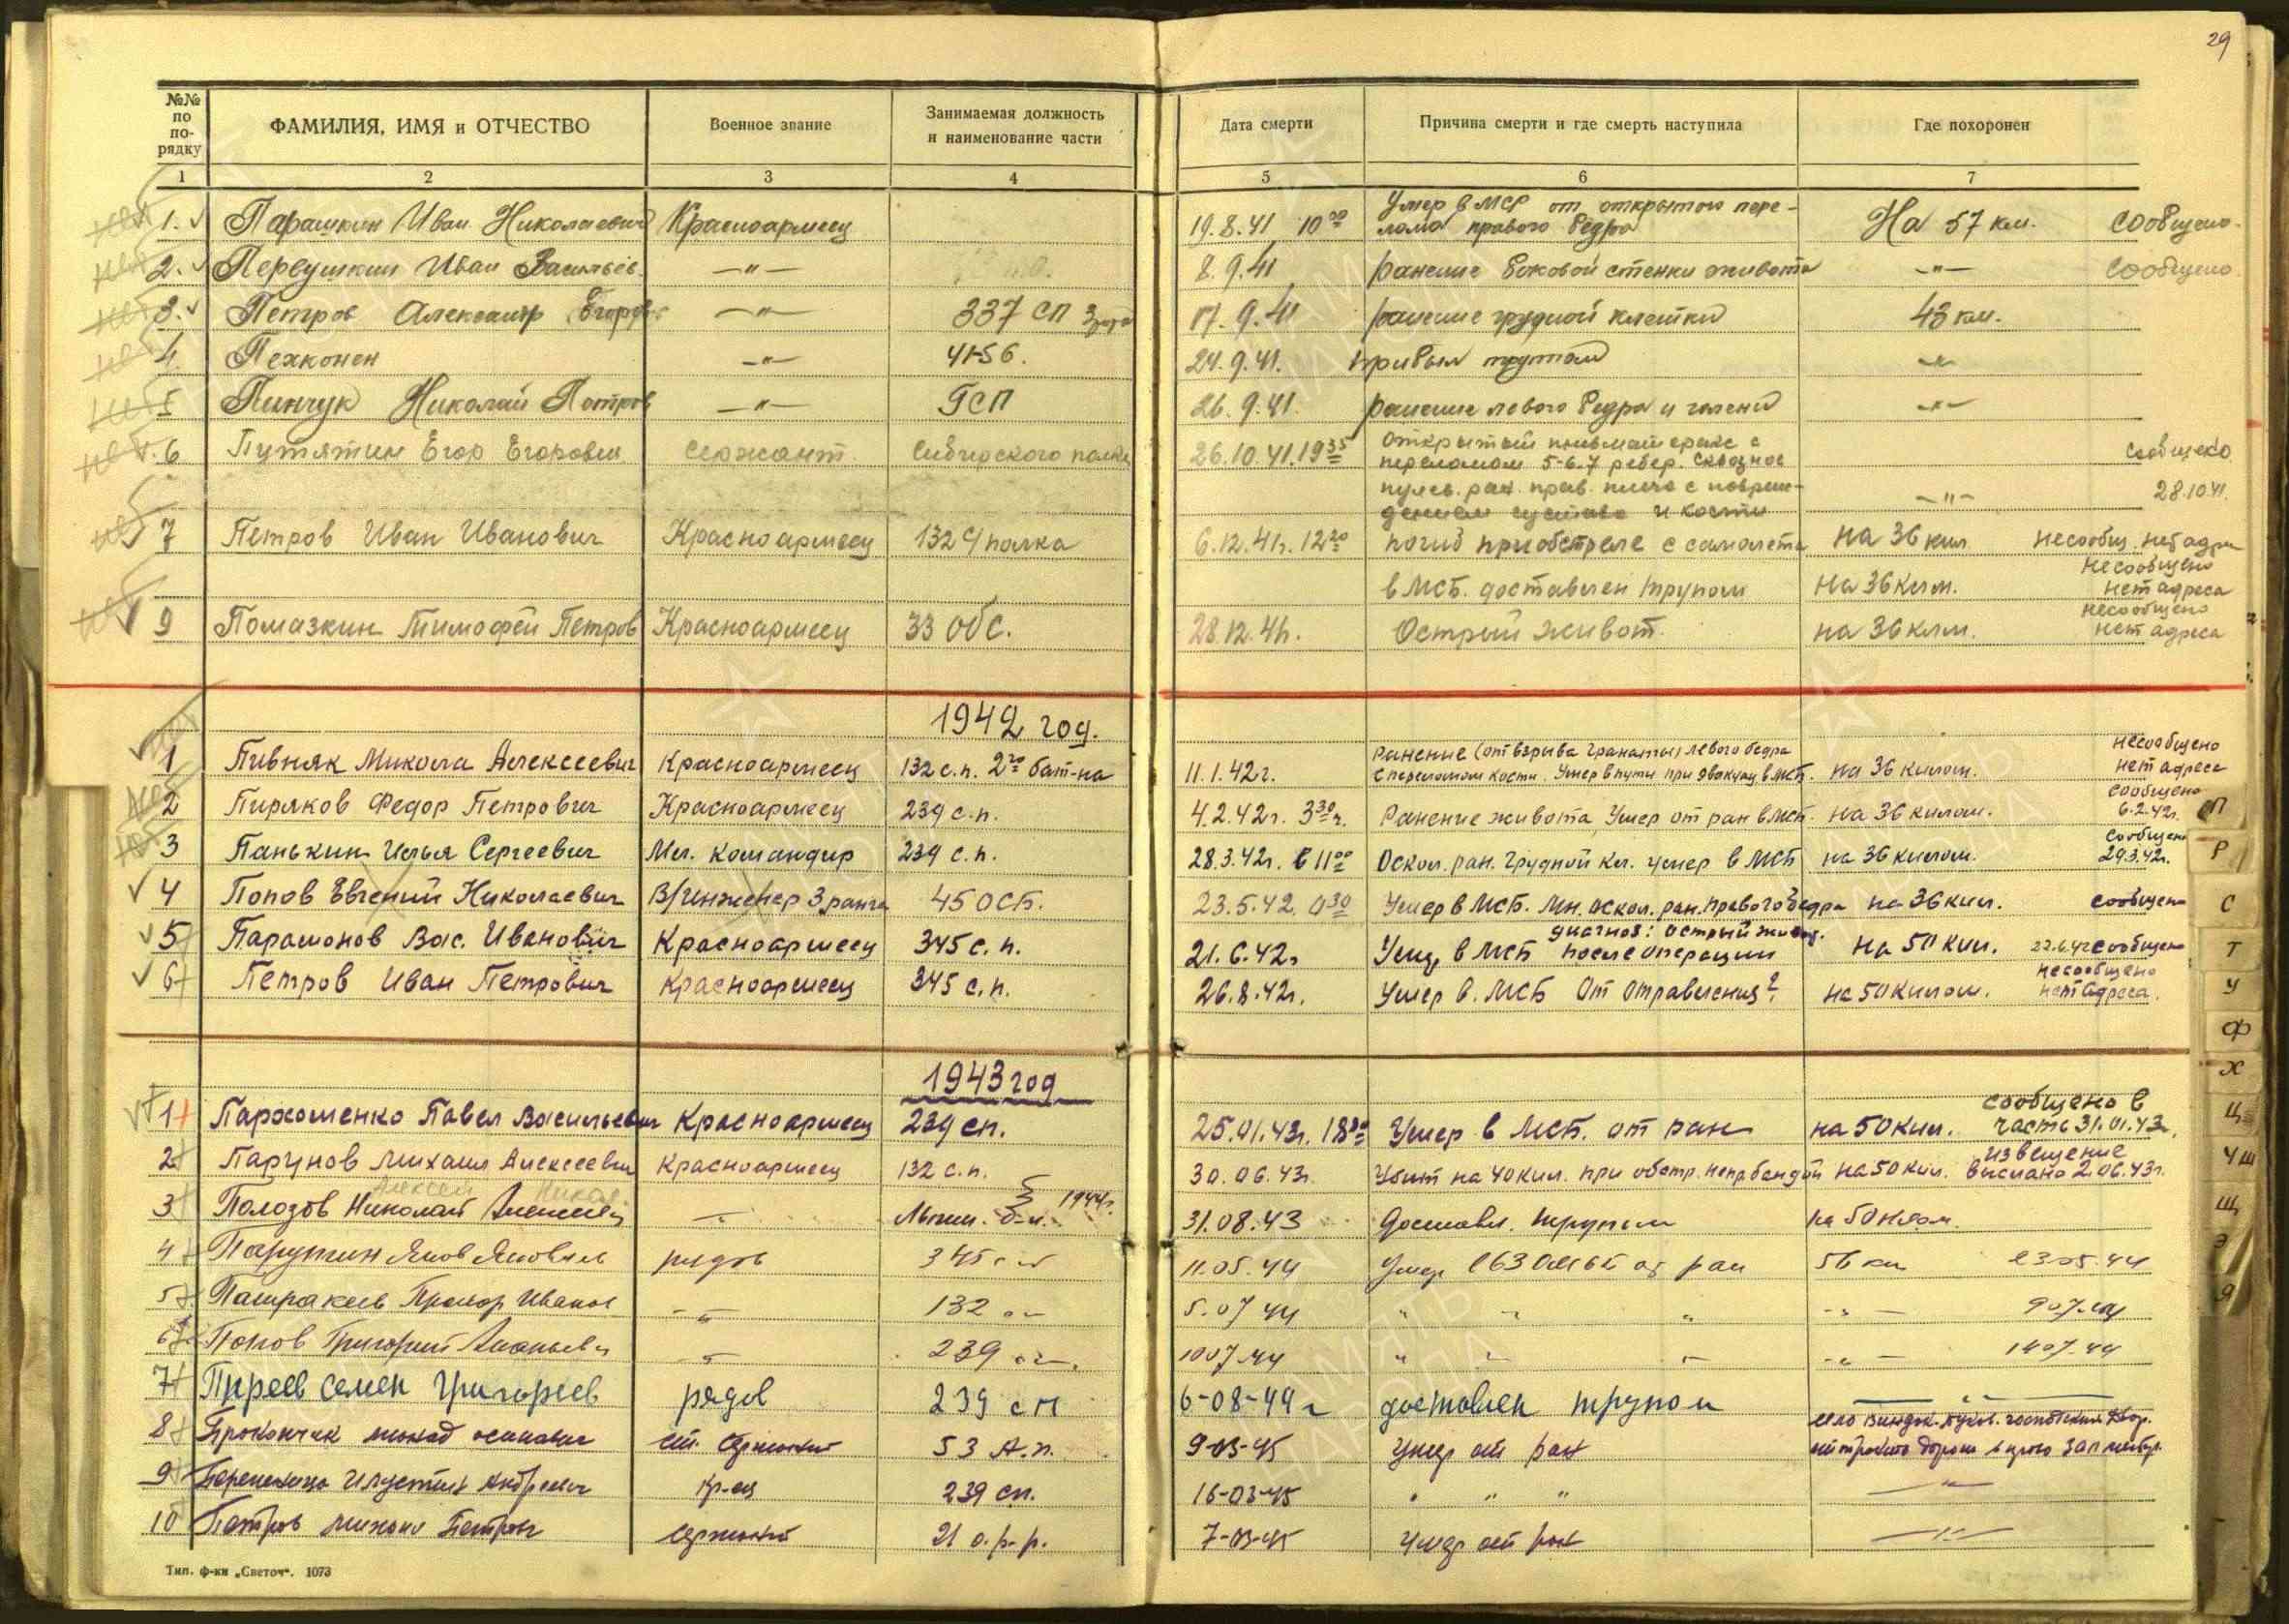 29
№№ по по-рядку
ФАМИЛИЯ, ИМЯ и ОТЧЕСТВО
Военное звание
Занимаемая должность и наименование части
Дата смерти
Причина смерти и где смерть наступила
Где похоронен
1 2 3 4 5 6 7
1. Парашкин Иван Николаевич Красноармеец 19.8.41 10 00 Умер в МСБ от открытого пере-
лома правого бедра На 57 км. сообщено
2. Первушкин Иван Васильев. —"— 8.9.41 ранение боковой стенки живота —"— сообщено
3. Петров Александр Егоров —"— 337 СП 17.9.41 ранение грудной клетки 43 км.
4. Пехконен —"— 4156. 24.9.41. прибыл трупом —"—
5 Пинчук Николай Петров —"— 26.9.41. ранение левого бедра и голени —"—
6 Путятин Егор Егорович сержант Сибирского полка 26.10.41. 19 35 открытый пневматоракс с
переломом 5-6-7 ребер. Сквозное сообщено
пулев. ран. прав. плеча с повреж- —"— 28.10.41.
дением сустава и кости
7 Петров Иван Иванович Красноармеец 132 полка 6.12.41г. 12 20 погиб при обстреле с самолета на 36 килом несообщ. нет адре
в МСБ. доставлен трупом на 36 клм. несообщено нет адреса
9 Помазкин Тимофей Петров Красноармеец 33 ОбС. 28.12.41г. Острый живот. на 36 клм. несообщено нет адреса
1942 год.
1 Пивняк Микола Алексеевич Красноармеец 132 с.п. 2го бат-на 11.1.42г. Ранение (от взрыва гранаты) левого бедра
с переломом кости. Умер в пути при эвакуац в МСБ. на 36 килом. несообщено нет адреса
2 Пиряков Федор Петрович Красноармеец 239 с.п. 4.2.42г. 3 30 ч. Ранение живота, Умер от ран в МСБ. на 36 килом. сообщено 6.2.42г.
3 Панькин Илья Сергеевич Мл. командир 239 с.п. 28.3.42г. в 11 00 Оскол. ран. грудной кл. умер в МСБ на 36 килом. сообщено 29.3.42г.
4 Попов Евгений Николаевич В/инженер 3 ранга 45 ОСБ. 23.5.42. 0 30 Умер в МСБ. Мн. оскол. ран. правого бедра на 36 кил. сообщено
5 Парамонов Вас. Иванович Красноармеец 345 с.п. 21.6.42г диагноз: острый живот.
Умер в МСБ после операции на 50 кил. 22.6.42 сообщено
6 Петров Иван Петрович Красноармеец 345 с.п. 26.8.42г. Умер в. МСБ От отравления? на 50 килом. несообщено нет адреса.
1943 год
1 Пархоменко Павел Васильевич Красноармеец 239 сп. 25.01.43г. 18 Умер в МСБ. от ран на 50 кил. сообщено в часть 31.01.43
2 Парунов Михаил Алексеевич Красноармеец 132 с.п. 30.06.43г. Убит на 40 кил. при обстр. непр. на 50 кил. извещение выслано 2.06.43г.
Алексей Никол.
3 Полозов Николай Алексеев —"— Лыжн. б-н. 1944г. 31.08.43 Доставл. трупом на 50 клом.
4 Парутин Яков Яковлев рядов 345 11.05.44 Умер от ран 56 км 23.05.44
5 Иванов —"— 132 5.07.44 " " " —"— 9.07.44
6 Попов Григорий —"— 239 10.07.44 " " " —"— 14.07.44
7 Пиреев Семен Григорьев рядов 239 сп 6-08-44г доставлен трупом —"—
8 Прокопчик осипович ст. сержант 53 А.п. 9-03-45 Умер от ран
9 кр-ец 239 сп. 16-03-45 " " " —"—
10 Петров Михаил Петров сержант 21 о.р.р. 7-03-45 Умер от ран —"—
Тип. ф-ки „Светоч“. 1073
П
Р
С
Т
У
Ф
Х
Ц
Ч Ш
Щ
Э
Я